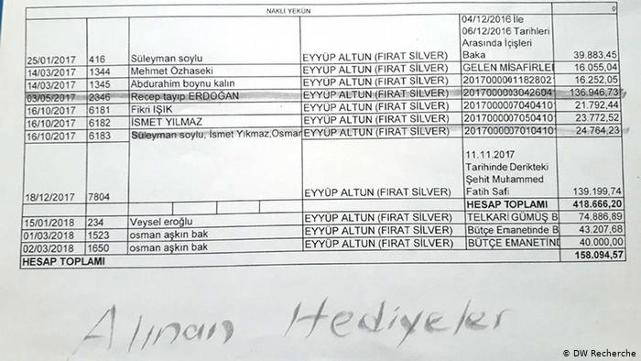 NAKLİ YEKÜN 0
25/01/2017 416 Süleyman soylu EYYÜP ALTUN (FIRAT SİLVER) 04/12/2016 İle 06/12/2016 Tarihleri Arasında İçişleri Baka 39.883,45
14/03/2017 1344 Mehmet Özhaseki EYYÜP ALTUN (FIRAT SİLVER) GELEN MİSAFİRLE 16.055,04
14/03/2017 1345 Abdurahim boynu kalın EYYÜP ALTUN (FIRAT SİLVER) 2017000001182802 16.252,05
03/05/2017 2346 Recep tayıp ERDOĞAN EYYÜP ALTUN (FIRAT SİLVER) 2017000003042604 136.946,73
16/10/2017 6181 Fikri IŞIK EYYÜP ALTUN (FIRAT SİLVER) 2017000007040410 21.792,44
16/10/2017 6182 İSMET YILMAZ EYYÜP ALTUN (FIRAT SİLVER) 2017000007050410 23.772,52
16/10/2017 6183 Süleyman soylu, İsmet Yıkmaz,Osmar EYYÜP ALTUN (FIRAT SİLVER) 2017000007010410 24.764,23
18/12/2017 7804 EYYÜP ALTUN (FIRAT SİLVER) 11.11.2017 Tarihinde Derikteki Şehit Muhammed Fatih Safi 139.199,74
HESAP TOPLAMI 418.666,20
15/01/2018 234 Veysel eroğlu EYYÜP ALTUN (FIRAT SİLVER) TELKARİ GÜMÜŞ B 74.886,89
01/03/2018 1523 osman aşkın bak EYYÜP ALTUN (FIRAT SİLVER) Bütçe Emanetinde B 43.207,68
02/03/2018 1650 osman aşkın bak EYYÜP ALTUN (FIRAT SİLVER) BÜTÇE EMANETİNI 40.000,00
HESAP TOPLAMI 158.094,57
Alınan Hediyeler
© DW Recherche